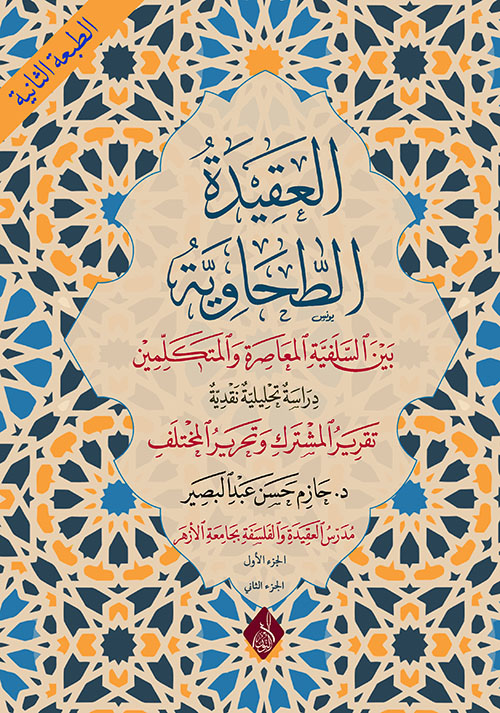 الطبعة الثانية
العَقِيدَةُ
الطَّحَاوِيَّةُ
يونس
بَيْنَ السَّلَفِيَّةِ المُعَاصِرَةِ وَالمُتَكَلِّمِين
دِرَاسَةٌ تَحْلِيلِيَّةٌ نَقْدِيَّةٌ
تَقْرِيرُ المُشْتَرَكِ وَتَحْرِيرُ المُخْتَلَفِ
د. حَازِم حَسَن عَبْد البَصِير
مُدَرِّسُ العَقِيدَةِ وَالفَلْسَفَةِ بِجَامِعَةِ الأَزْهَر
الجزء الأول
الجزء الثاني